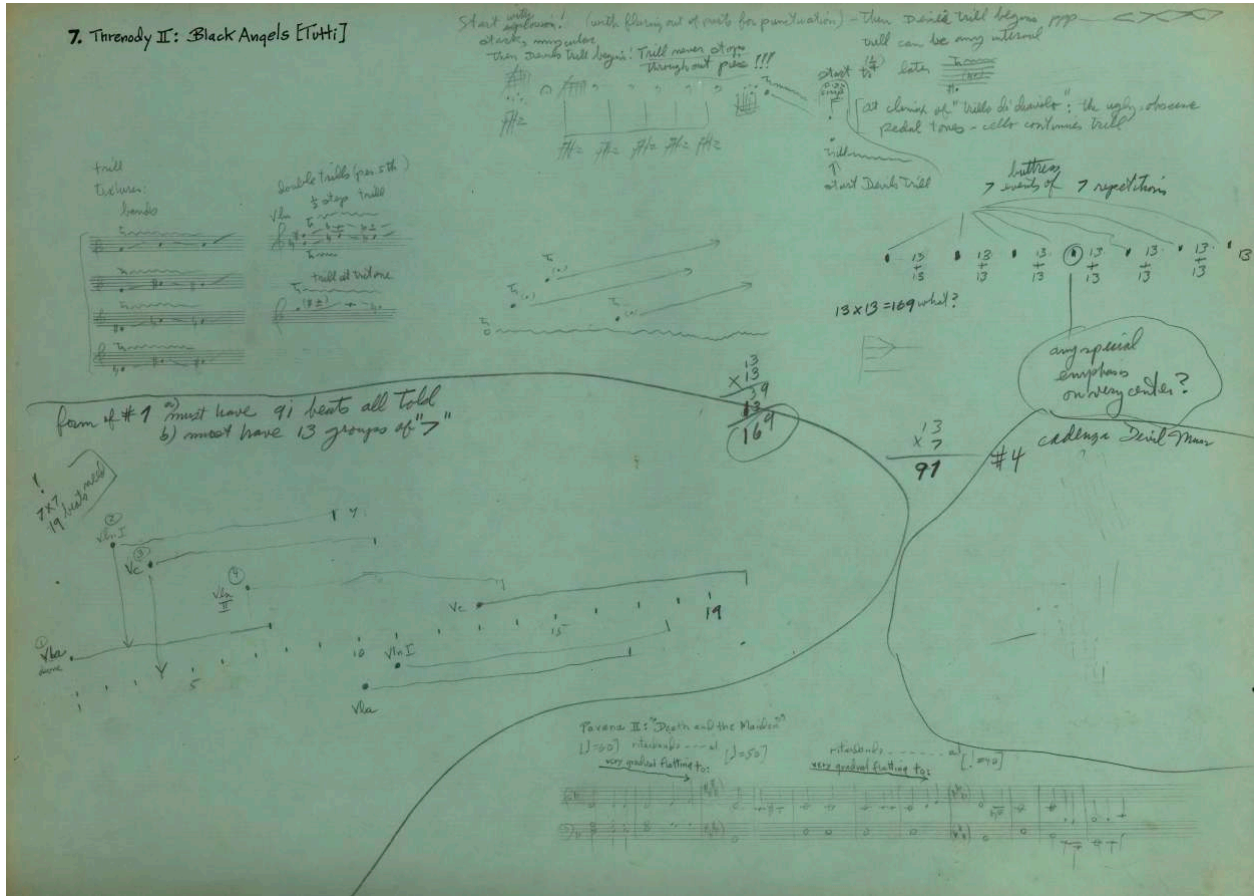 7. Threnody II: Black Angels [Tutti]
Start with explosion! (with flaring out of parts for punctuation) - then Devil's trill begins ppp
trill can be any interval
then Devils trill begins! Trill never stops
throughout piece!!!
start
later
at climax of "trillo di diavolo": the ugly, obscene
pedal tones - cello continues trill
trill
start Devils trill
trill
textures:
bands
double trills (per 5th)
½ step trill
Vla
trill at tritone
buttress
7 events of 7 repetitions
13 + 13
13 + 13
13 + 13
13 + 13
13 + 13
13 + 13
13
13 x 13 = 169 what?
any special
emphasis
on very center?
13
x 13
39
13
169
form of #1 a) must have 91 beats all told
b) must have 13 groups of "7"
13
x 7
91
#4
cadenza Devil Music
!
7x7
19 beats
need
② Vln I
7
③ Vc
④ Vln II
Vc
① Vla
5
10
15
19
Vln I
Vla
Pavana II: "Death and the Maiden"
[♩=60] ritardando ---- al [♩=50]
very gradual flatting to:
ritardando -------- al [♩=40]
very gradual flatting to: